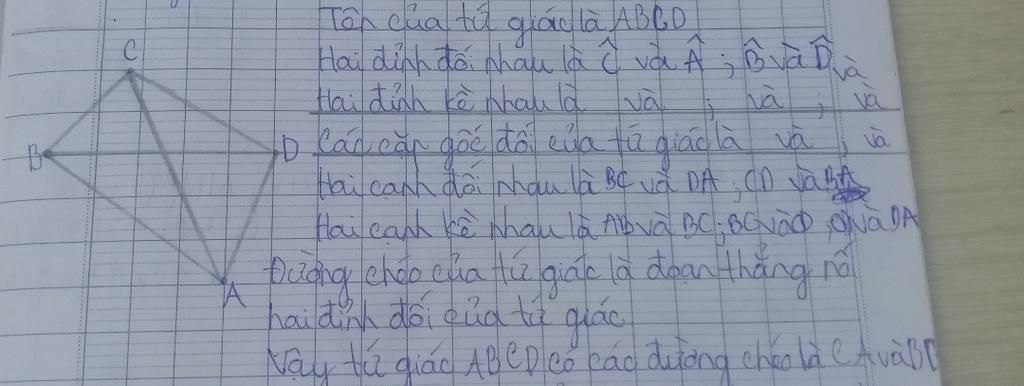 C
B
D
A
Tên của tứ giác là ABCD
Hai đỉnh đối nhau là Ĉ và Â ; B̂ và D̂
Hai đỉnh kề nhau là và ; và ; và và
Các cặp gốc đối của tứ giác là và ; và
Hai cạnh đối nhau là BC và DA , CD và BA
Hai cạnh kề nhau là AB và BC ; BC và CD và DA
Đường chéo của tứ giác là đoạn thẳng nối
hai đỉnh đối của tứ giác
Vậy tứ giác ABCD có các đường chéo là CA và BD